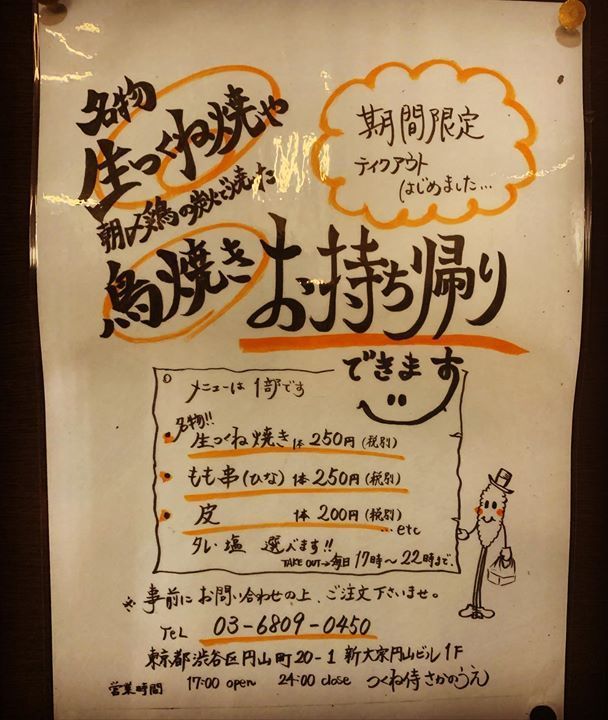 名物
生つくね焼や
朝〆鶏の炭で焼いた
鳥焼き
期間限定
テイクアウト
はじめました...
お持ち帰り
できます
メニューは1部です
名物!!
生つくね焼き 1本 250円(税別)
もも串(ひな) 1本 250円(税別)
皮 1本 200円(税別)
...etc
タレ・塩 選べます!!
TAKE OUT→毎日 17時〜22時まで.
※事前にお問い合わせの上、ご注文下さいませ。
TEL 03-6809-0450
東京都渋谷区円山町20-1 新大宗円山ビル1F
営業時間 17:00 open 24:00 close つくね侍さかのうえ